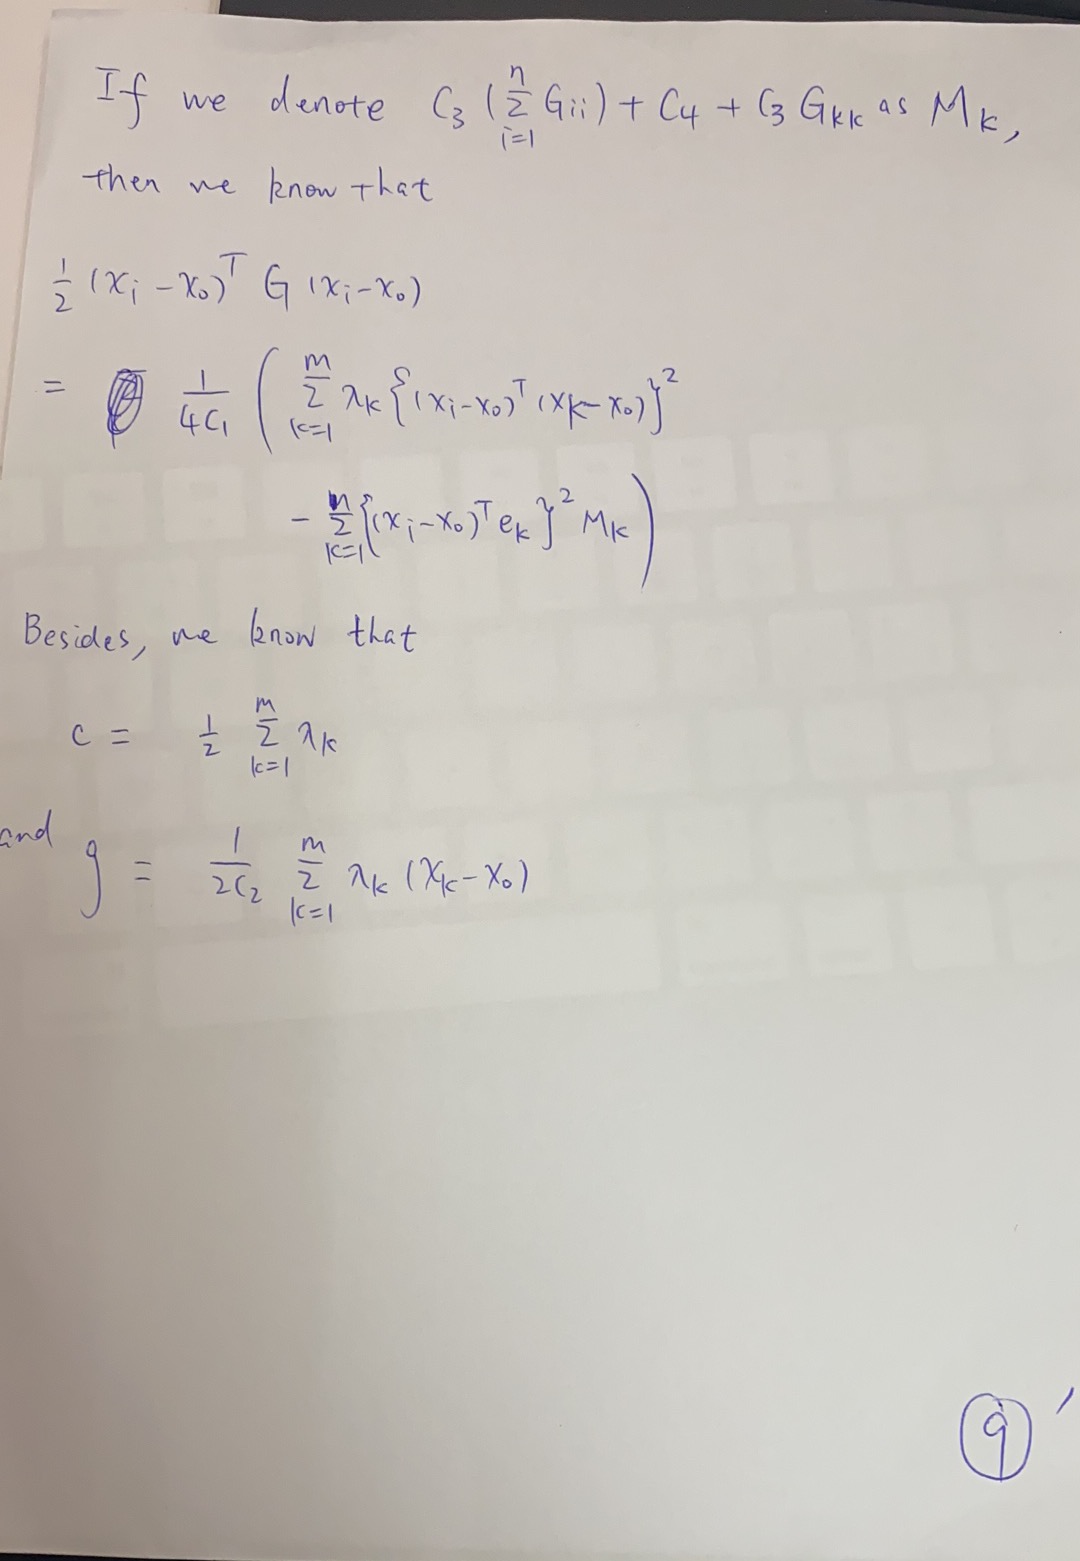 If we denote C₃ (∑ⁿᵢ₌₁ Gᵢᵢ) + C₄ + C₃ Gₖₖ as Mₖ,
then we know that
½ (xᵢ − x₀)ᵀ G (xᵢ − x₀)
= 1/(4C₁) ( ∑ᵐₖ₌₁ λₖ {(xᵢ − x₀)ᵀ (xₖ − x₀)}²
− ∑ⁿₖ₌₁ {(xᵢ − x₀)ᵀ eₖ}² Mₖ )
Besides, we know that
c = ½ ∑ᵐₖ₌₁ λₖ
and g = 1/(2C₂) ∑ᵐₖ₌₁ λₖ (xₖ − x₀)
9